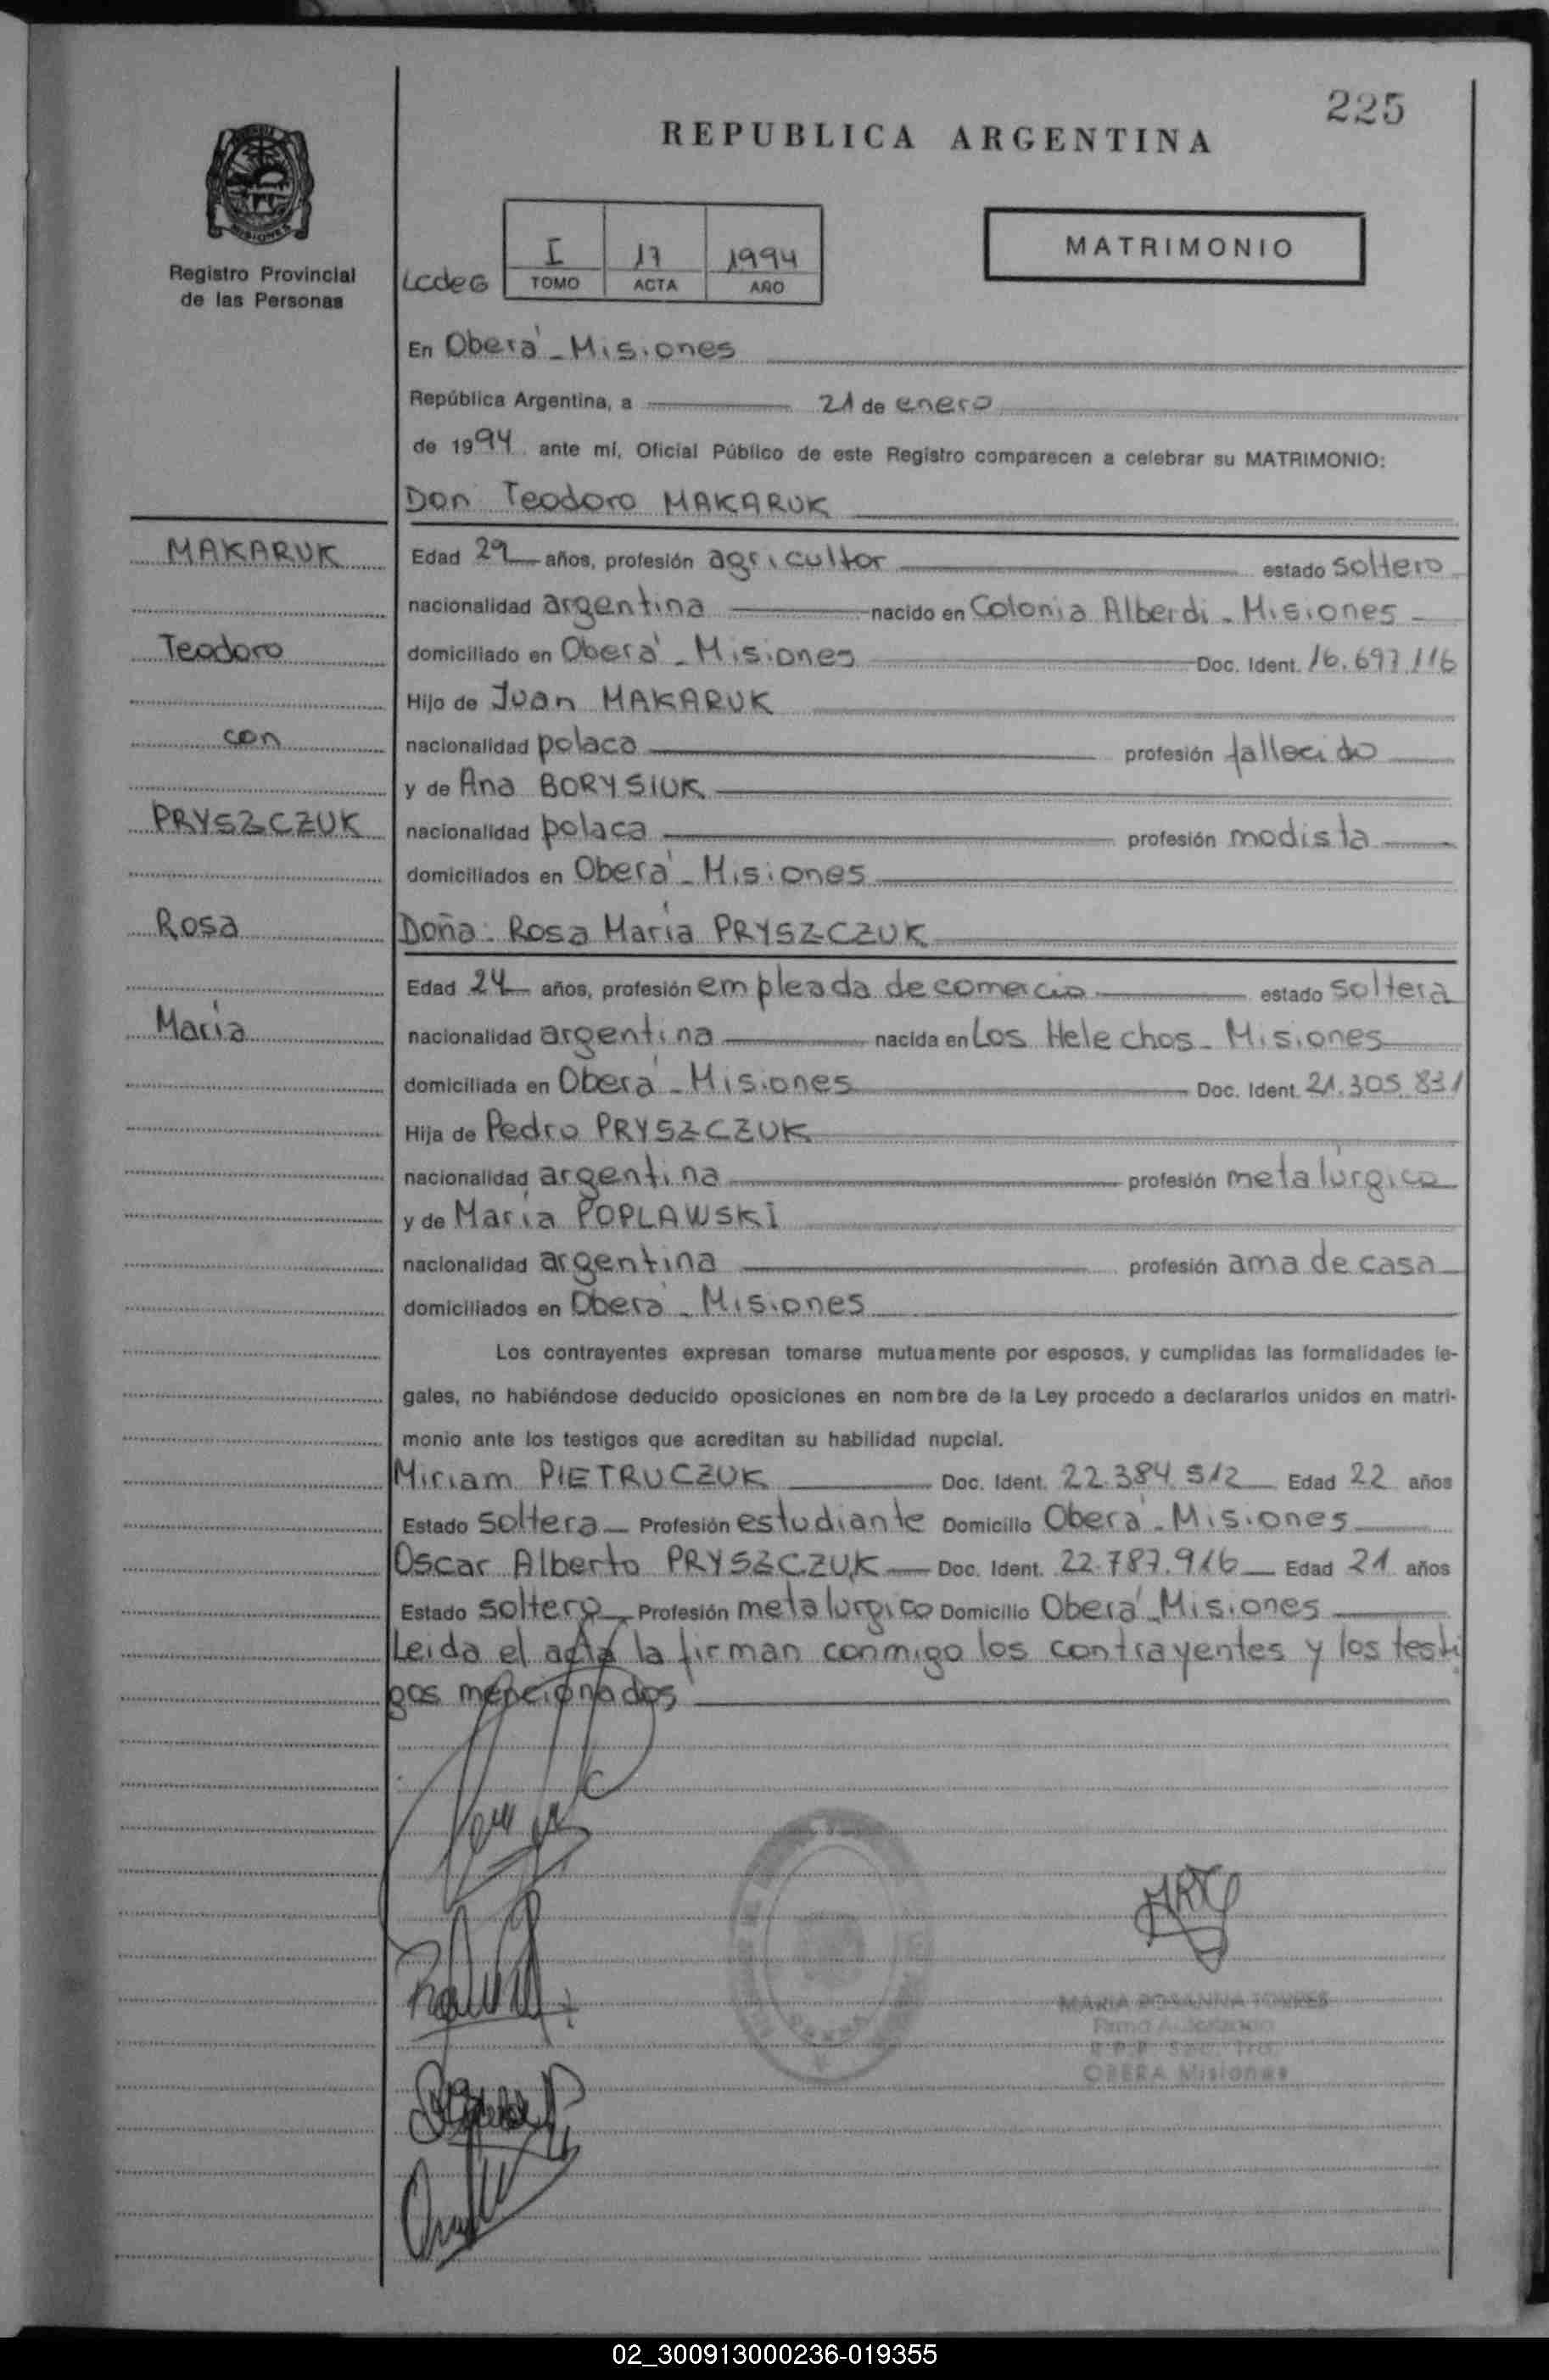 225
REPUBLICA ARGENTINA
MISIONES
Registro Provincial
de las Personas
LcdeG
I 17 1994
TOMO ACTA AÑO
MATRIMONIO
En Oberá - Misiones
República Argentina, a 21 de enero
de 1994 ante mí, Oficial Público de este Registro comparecen a celebrar su MATRIMONIO:
Don Teodoro MAKARUK
MAKARUK
Edad 29 años, profesión agricultor estado soltero
nacionalidad argentina nacido en Colonia Alberdi - Misiones
Teodoro
domiciliado en Oberá - Misiones Doc. Ident. 16.697.116
Hijo de Juan MAKARUK
con
nacionalidad polaca profesión fallecido
y de Ana BORYSIUK
PRYSZCZUK
nacionalidad polaca profesión modista
domiciliados en Oberá - Misiones
Rosa
Doña: Rosa María PRYSZCZUK
Edad 24 años, profesión empleada de comercio estado soltera
María
nacionalidad argentina nacida en Los Helechos - Misiones
domiciliada en Oberá - Misiones Doc. Ident. 21.305.831
Hija de Pedro PRYSZCZUK
nacionalidad argentina profesión metalúrgico
y de María POPLAWSKI
nacionalidad argentina profesión ama de casa
domiciliados en Oberá - Misiones
Los contrayentes expresan tomarse mutuamente por esposos, y cumplidas las formalidades le-
gales, no habiéndose deducido oposiciones en nombre de la Ley procedo a declararlos unidos en matri-
monio ante los testigos que acreditan su habilidad nupcial.
Miriam PIETRUCZUK Doc. Ident. 22.384.512 Edad 22 años
Estado soltera Profesión estudiante Domicilio Oberá - Misiones
Oscar Alberto PRYSZCZUK Doc. Ident. 22.787.916 Edad 21 años
Estado soltero Profesión metalurgico Domicilio Oberá - Misiones
Leida el acta la firman conmigo los contrayentes y los testi
gos mencionados
MARIA ROSANNA TORRES
OBERA Misiones
02_300913000236-019355